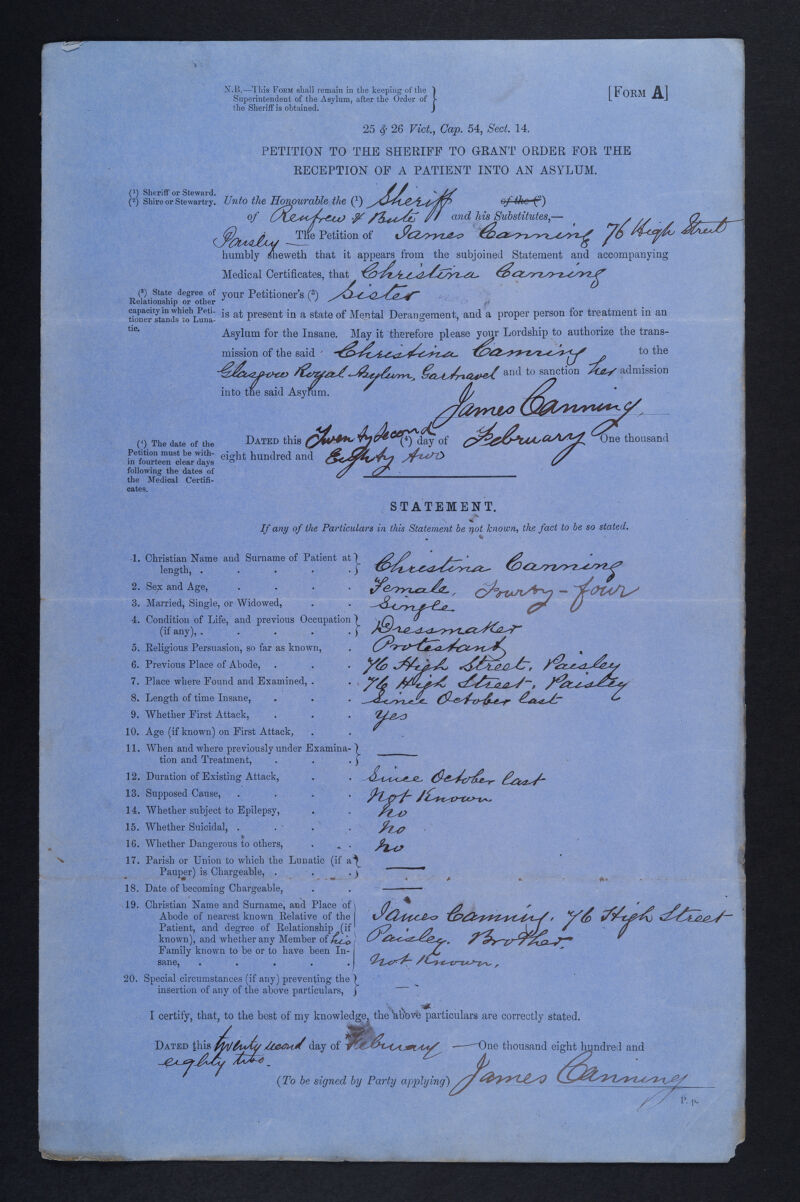 N.B.—This Form shall remain in the keeping of the
Superintendent of the Asylum, after the Order of
the Sheriff is obtained.
[Form A]
25 & 26 Vict., Cap. 54, Sect. 14.
PETITION TO THE SHERIFF TO GRANT ORDER FOR THE
RECEPTION OF A PATIENT INTO AN ASYLUM.
(¹) Sheriff or Steward.
(²) Shire or Stewartry.
Unto the Honourable the (¹) Sheriff of the (²)
of Renfrew & Bute and his Substitutes,—
The Petition of James Canning 76 High Street
Paisley —
humbly sheweth that it appears from the subjoined Statement and accompanying
Medical Certificates, that Christina Canning
(³) State degree of
Relationship or other
capacity in which Peti-
tioner stands to Luna-
tic.
your Petitioner's (³) Sister
is at present in a state of Mental Derangement, and a proper person for treatment in an
Asylum for the Insane. May it therefore please your Lordship to authorize the trans-
mission of the said Christina Canning to the
Glasgow Royal Asylum, Gartnavel and to sanction her admission
into the said Asylum.
James Canning
(⁴) The date of the
Petition must be with-
in fourteen clear days
following the dates of
the Medical Certifi-
cates.
Dated this Twenty second (⁴) day of February One thousand
eight hundred and Eighty two
STATEMENT.
If any of the Particulars in this Statement be not known, the fact to be so stated.
1. Christian Name and Surname of Patient at
length, . . . . . Christina Canning
2. Sex and Age, . . . . Female, Fourty-four
3. Married, Single, or Widowed, . . Single
4. Condition of Life, and previous Occupation
(if any), . . . . . Dressmaker
5. Religious Persuasion, so far as known, . Protestant
6. Previous Place of Abode, . . . 76 High Street, Paisley
7. Place where Found and Examined, . . 76 High Street, Paisley
8. Length of time Insane, . . . Since October last
9. Whether First Attack, . . . Yes
10. Age (if known) on First Attack, . .
11. When and where previously under Examina-
tion and Treatment, . . . —
12. Duration of Existing Attack, . . Since October last
13. Supposed Cause, . . . . Not Known
14. Whether subject to Epilepsy, . . No
15. Whether Suicidal, . . . . No
16. Whether Dangerous to others, . . . No
17. Parish or Union to which the Lunatic (if a
Pauper) is Chargeable, . . . . —
18. Date of becoming Chargeable, . . —
19. Christian Name and Surname, and Place of
Abode of nearest known Relative of the
Patient, and degree of Relationship (if
known), and whether any Member of his
Family known to be or to have been In-
sane, . . . . .
James Canning. 76 High Street
Paisley. Brother.
Not Known.
20. Special circumstances (if any) preventing the
insertion of any of the above particulars, —
I certify, that, to the best of my knowledge, the above particulars are correctly stated.
Dated this twenty second day of February — One thousand eight hundred and
eighty two.
(To be signed by Party applying) James Canning